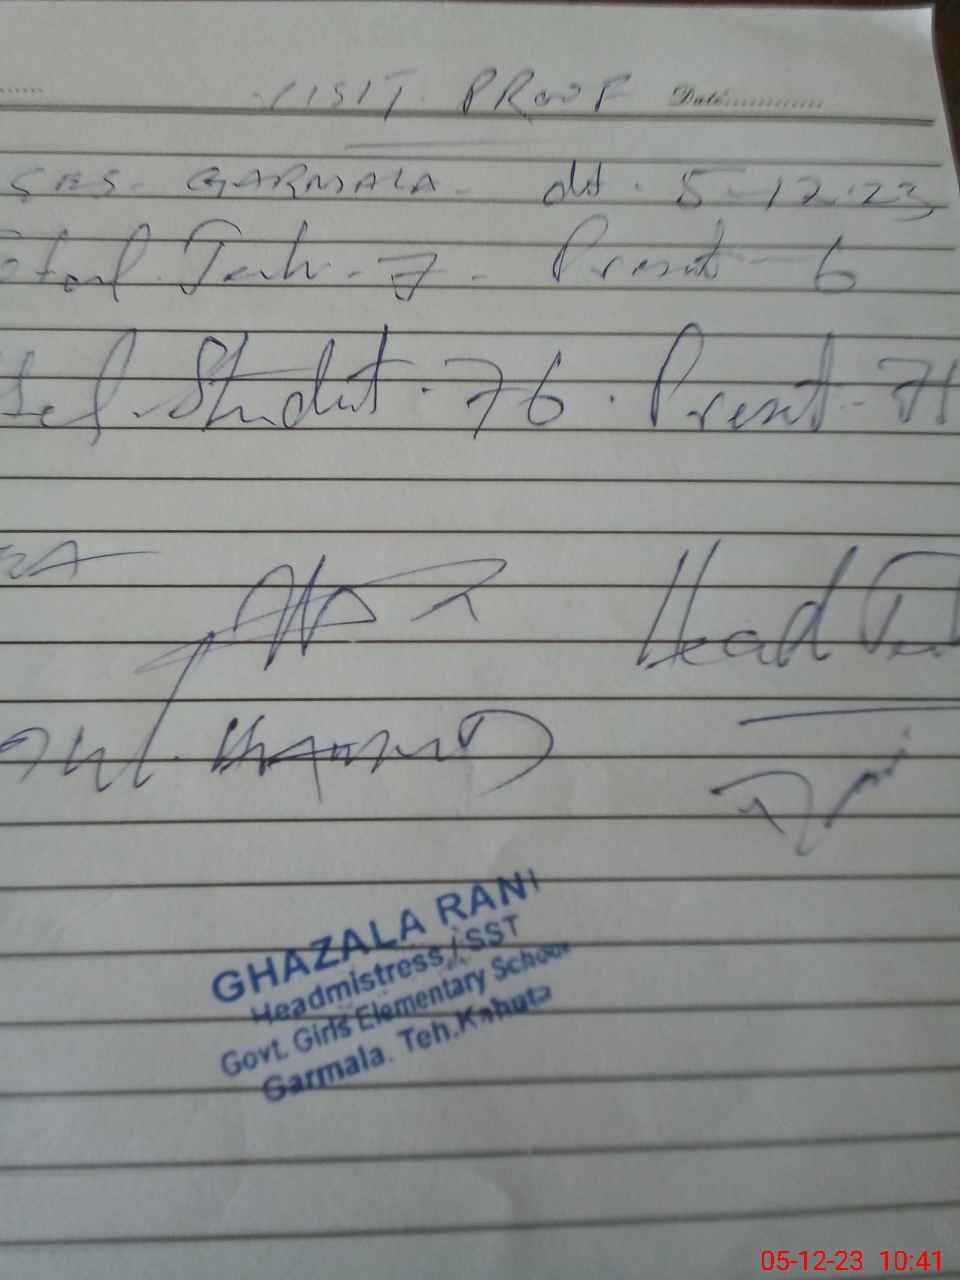 VISIT PROOF Date.............
GES. GARMALA. dt. 5-12-23
Total Teach. 7. Present - 6
Student. 76. Present - 71
Head
GHAZALA RANI
Headmistress / SST
Govt. Girls Elementary School
Garmala. Teh. Kahuta
05-12-23 10:41